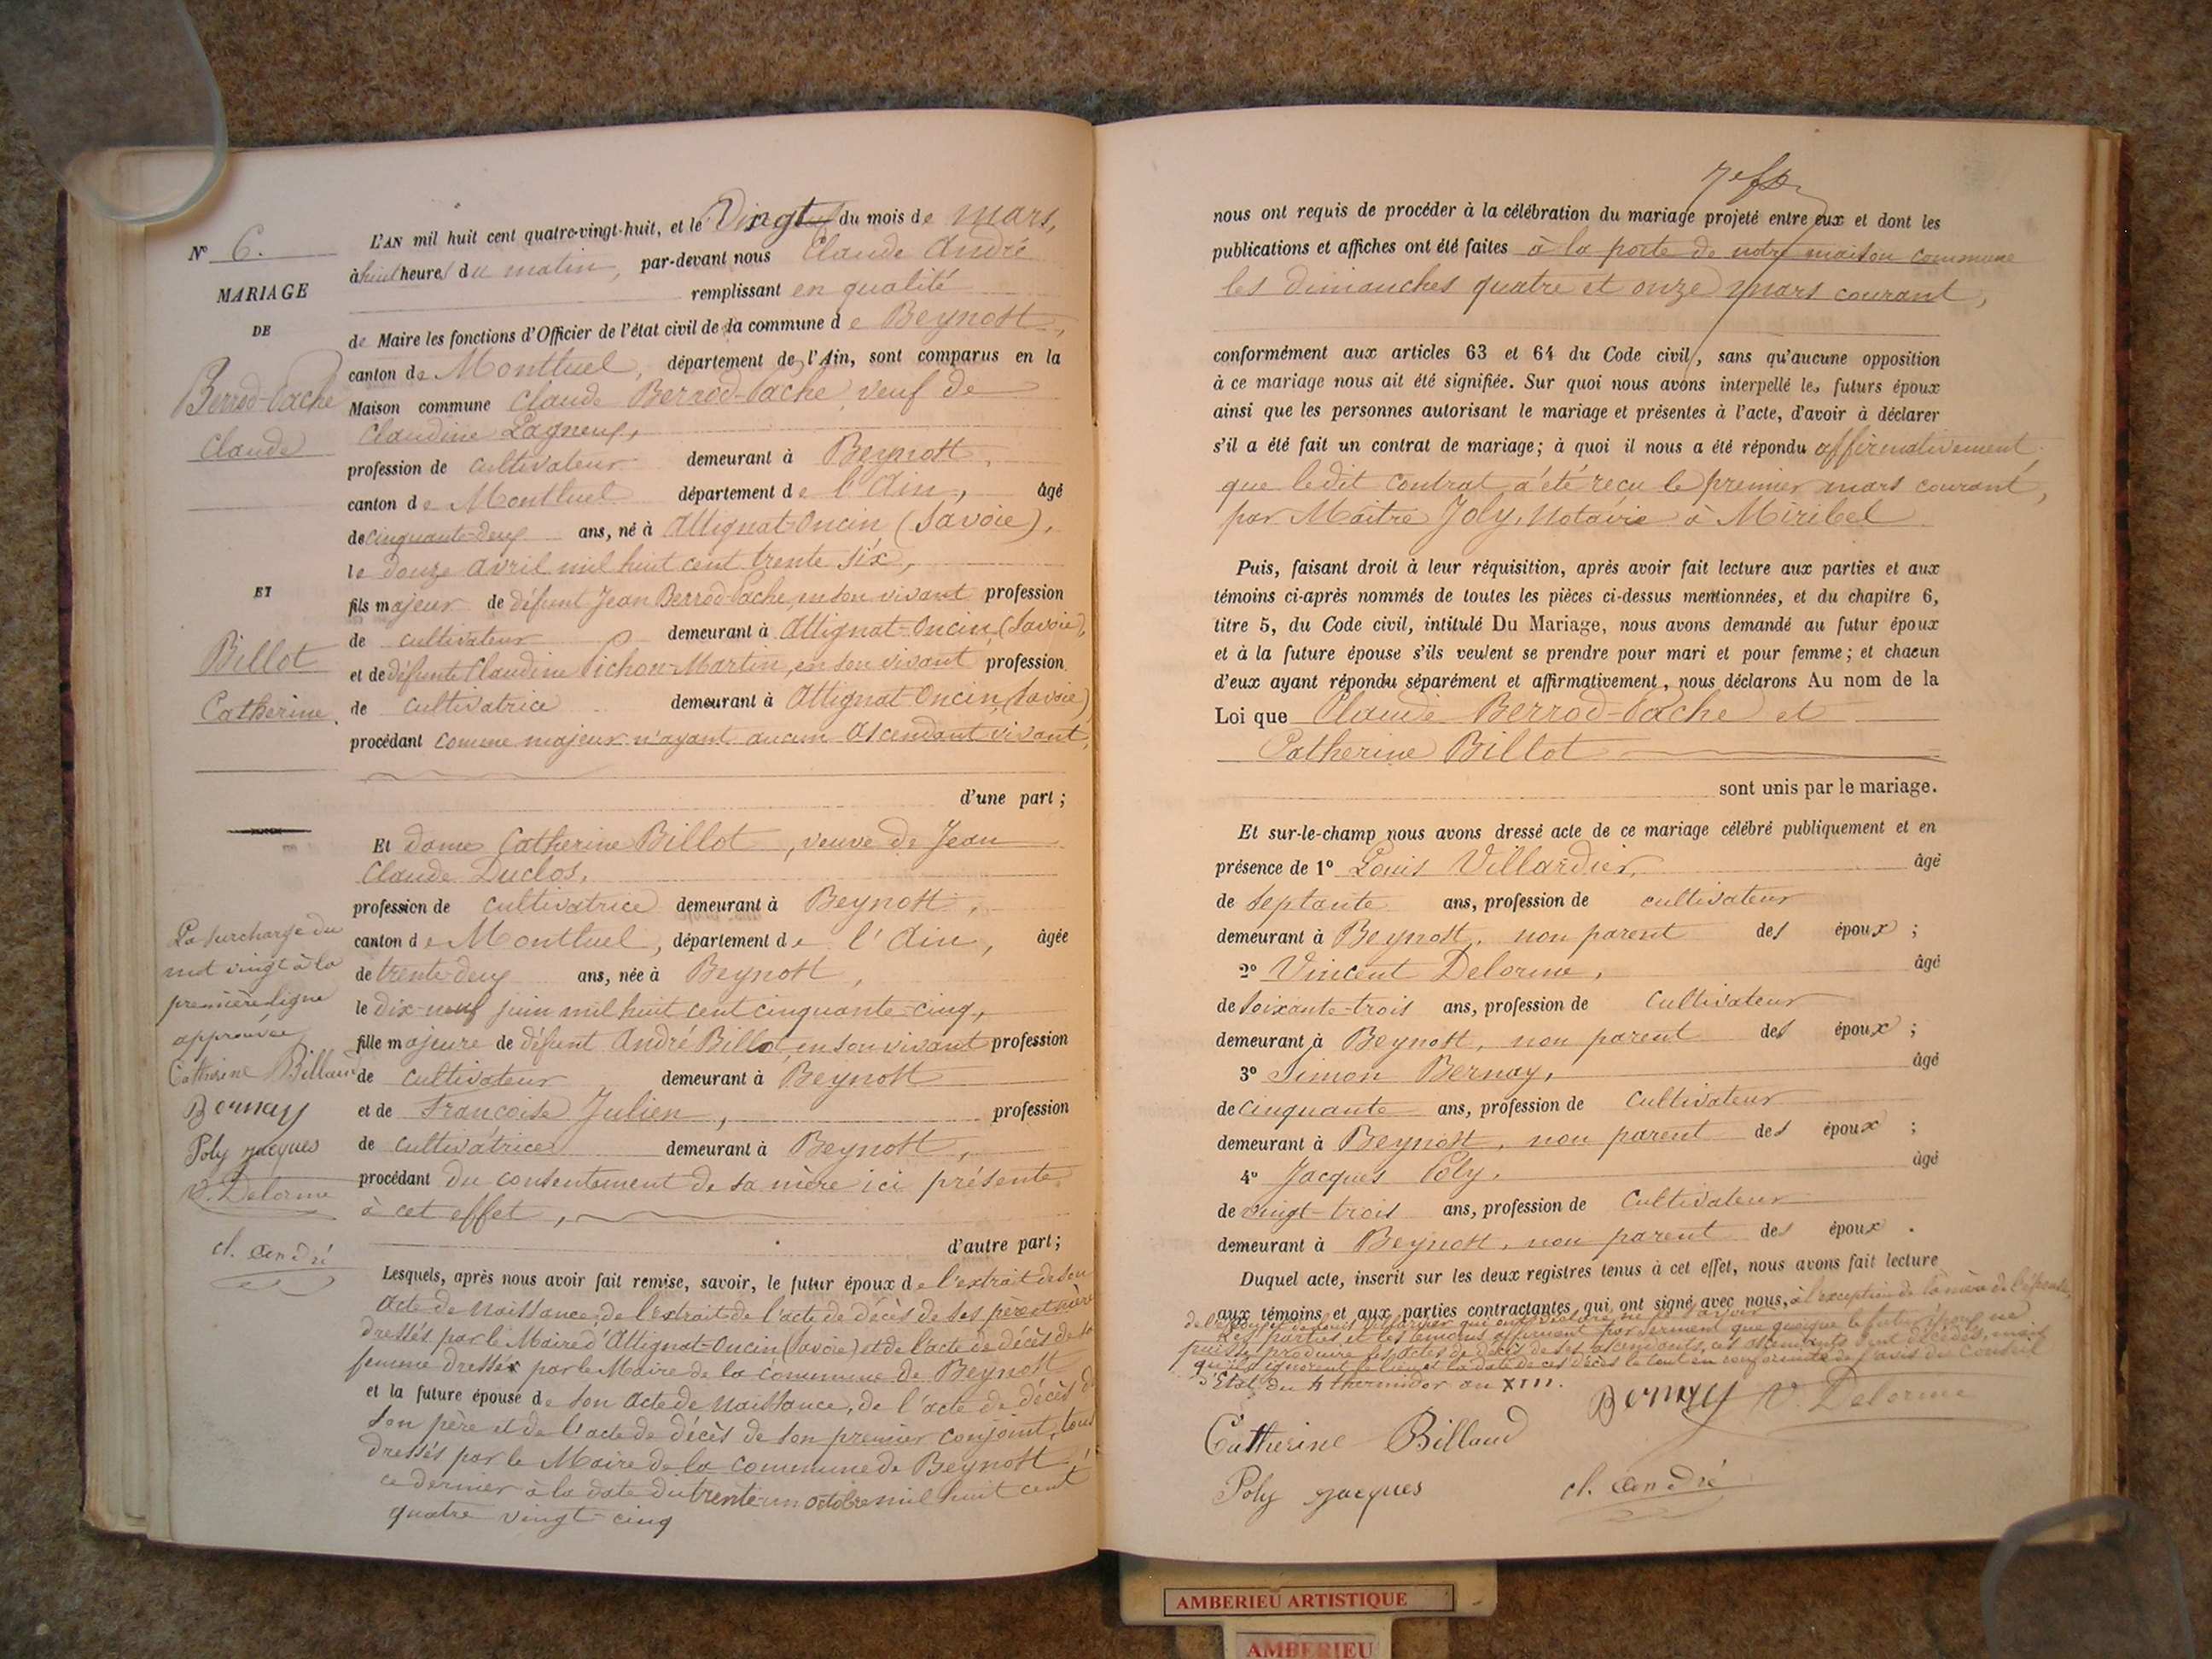 N° 6.
MARIAGE
DE
Berrod-Vache
Claude
ET
Billot
Catherine
La surcharge du
mot vingt à la
première ligne
approuvée
Catherine Billaud
Bernay
Poly jacques
V. Delorme
cl. André
L'AN mil huit cent quatre-vingt-huit, et le Vingt du mois de mars,
à huit heures du matin, par-devant nous Claude André
remplissant en qualité
de Maire les fonctions d'Officier de l'état civil de la commune de Beynost,
canton de Montluel, département de l'Ain, sont comparus en la
Maison commune Claude Berrod-Vache, veuf de
Claudine Pagneux,
profession de cultivateur demeurant à Beynost,
canton de Montluel département de l'Ain, âgé
de cinquante-deux ans, né à Attignat-Oncin (Savoie),
le douze avril mil huit cent trente six,
fils majeur de défunt Jean Berrod-Vache, en son vivant profession
de cultivateur demeurant à Attignat-Oncin (Savoie),
et de défunte Claudine Pichon-Martin, en son vivant profession
de cultivatrice demeurant à Attignat-Oncin, (Savoie)
procédant comme majeur n'ayant aucun ascendant vivant,
d'une part ;
Et dame Catherine Billot, veuve de Jean
Claude Duclos,
profession de cultivatrice demeurant à Beynost,
canton de Montluel, département de l'Ain, âgée
de trente-deux ans, née à Beynost,
le dix-neuf juin mil huit cent cinquante-cinq,
fille majeure de défunt André Billot, en son vivant profession
de cultivateur demeurant à Beynost
et de Françoise Julien, profession
de cultivatrice demeurant à Beynost,
procédant du consentement de sa mère ici présente
à cet effet,
d'autre part ;
Lesquels, après nous avoir fait remise, savoir, le futur époux de l'extrait de son
acte de naissance, de l'extrait de l'acte de décès de ses père et mère
dressés par le Maire d'Attignat-Oncin (Savoie) et de l'acte de décès de sa
femme dressés par le Maire de la commune de Beynost
et la future épouse de son acte de naissance, de l'acte de décès de
son père et de l'acte de décès de son premier conjoint, tous
dressés par le Maire de la commune de Beynost
ce dernier à la date du trente-un octobre mil huit cent
quatre vingt-cinq
nous ont requis de procéder à la célébration du mariage projeté entre eux et dont les
publications et affiches ont été faites à la porte de notre maison commune
les dimanches quatre et onze mars courant,
conformément aux articles 63 et 64 du Code civil, sans qu'aucune opposition
à ce mariage nous ait été signifiée. Sur quoi nous avons interpellé les futurs époux
ainsi que les personnes autorisant le mariage et présentes à l'acte, d'avoir à déclarer
s'il a été fait un contrat de mariage ; à quoi il nous a été répondu affirmativement
que ledit contrat a été reçu le premier mars courant,
par Maître Joly, Notaire à Miribel
Puis, faisant droit à leur réquisition, après avoir fait lecture aux parties et aux
témoins ci-après nommés de toutes les pièces ci-dessus mentionnées, et du chapitre 6,
titre 5, du Code civil, intitulé Du Mariage, nous avons demandé au futur époux
et à la future épouse s'ils veulent se prendre pour mari et pour femme ; et chacun
d'eux ayant répondu séparément et affirmativement, nous déclarons Au nom de la
Loi que Claude Berrod-Vache et
Catherine Billot
sont unis par le mariage.
Et sur-le-champ nous avons dressé acte de ce mariage célébré publiquement et en
présence de 1° Louis Villardier, âgé
de septante ans, profession de cultivateur
demeurant à Beynost, non parent des époux ;
2° Vincent Delorme, âgé
de soixante-trois ans, profession de cultivateur
demeurant à Beynost, non parent des époux ;
3° Simon Bernay, âgé
de cinquante ans, profession de cultivateur
demeurant à Beynost, non parent des époux ;
4° Jacques Poly, âgé
de vingt-trois ans, profession de cultivateur
demeurant à Beynost, non parent des époux.
Duquel acte, inscrit sur les deux registres tenus à cet effet, nous avons fait lecture
aux témoins et aux parties contractantes, qui ont signé avec nous, à l'exception de la mère de l'épouse,
de l'époux et de Louis Villardier qui ont déclaré ne le savoir
Les parties et les témoins affirment par serment que quoique le futur époux ne
puisse produire les actes de décès de ses ascendants, ces ascendants sont décédés, mais
qu'ils ignorent le lieu et la date de ces décès le tout en conformité de l'avis du Conseil
d'Etat du 4 thermidor an XIII.
Bernay V. Delorme
Catherine Billaud
Poly jacques cl. André
AMBERIEU ARTISTIQUE
AMBERIEU